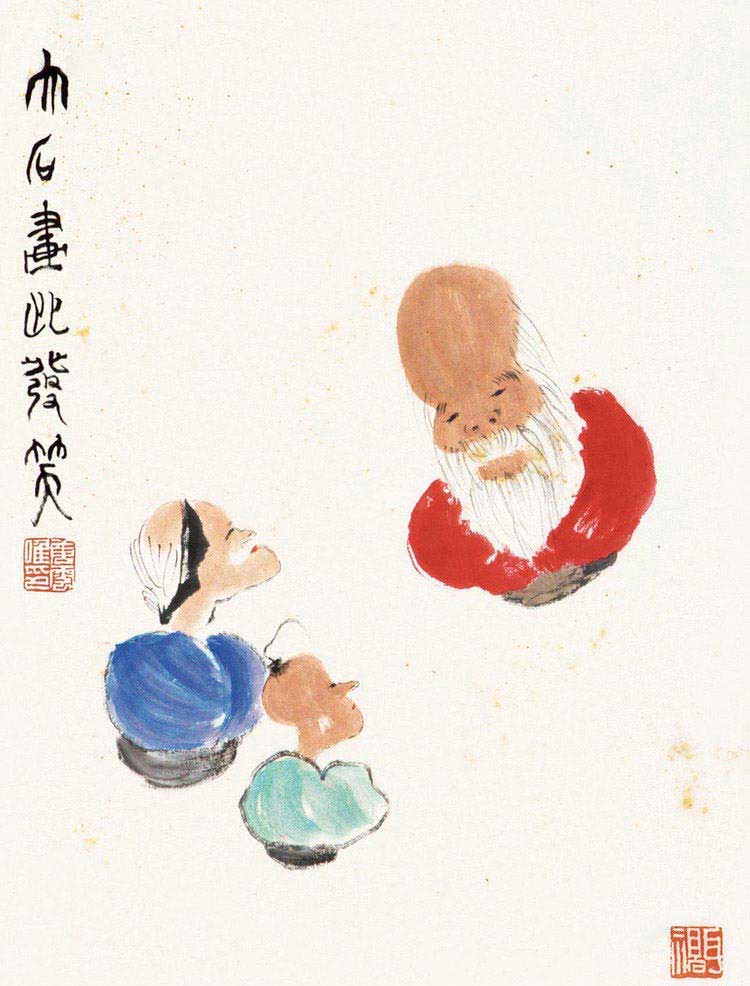 大石畫此發笑